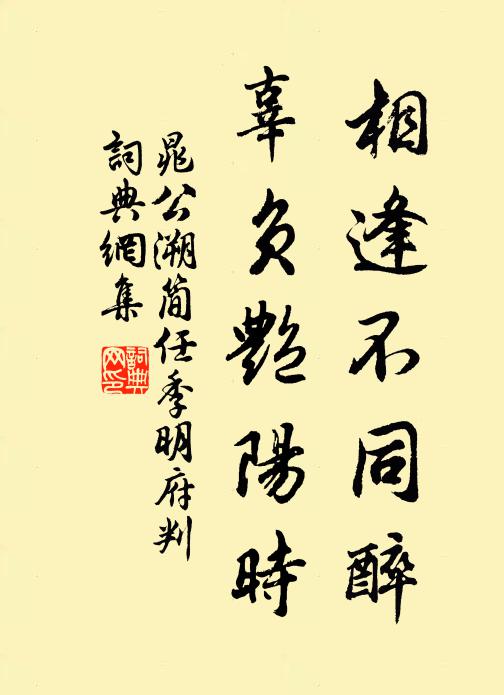 相逢不同醉
辜負艷陽時
晁公溯簡任季明府判
詞典網集
詞典網印